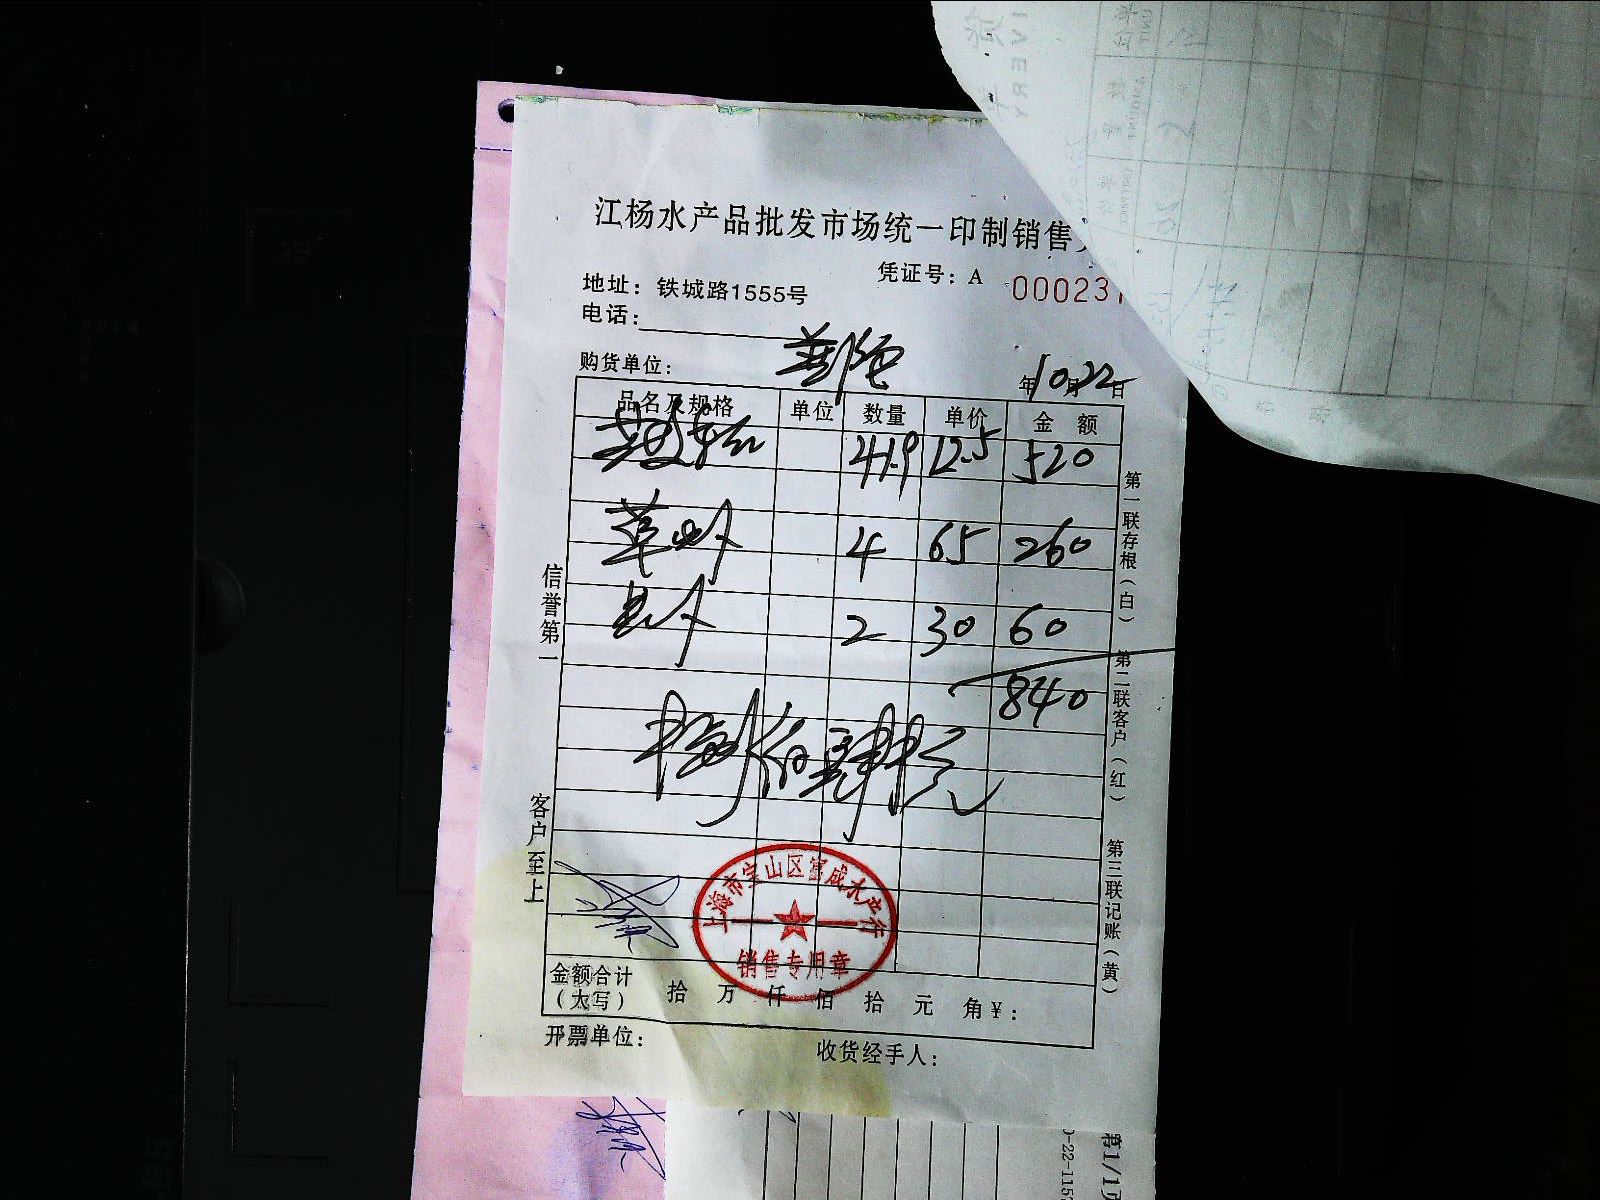 江杨水产品批发市场统一印制销售
凭证号：A 000231
地址：铁城路1555号
电话：
购货单位：
年10月22日
品名及规格 单位 数量 单价 金额
41.9 12.5 520
草虾 4 65 260
2 30 60
840
捌佰肆拾元
信誉第一
客户至上
第一联存根（白） 第二联客户（红） 第三联记账（黄）
上海市宝山区富成水产行
销售专用章
金额合计
（大写） 拾 万 仟 佰 拾 元 角 ¥：
开票单位：
收货经手人：